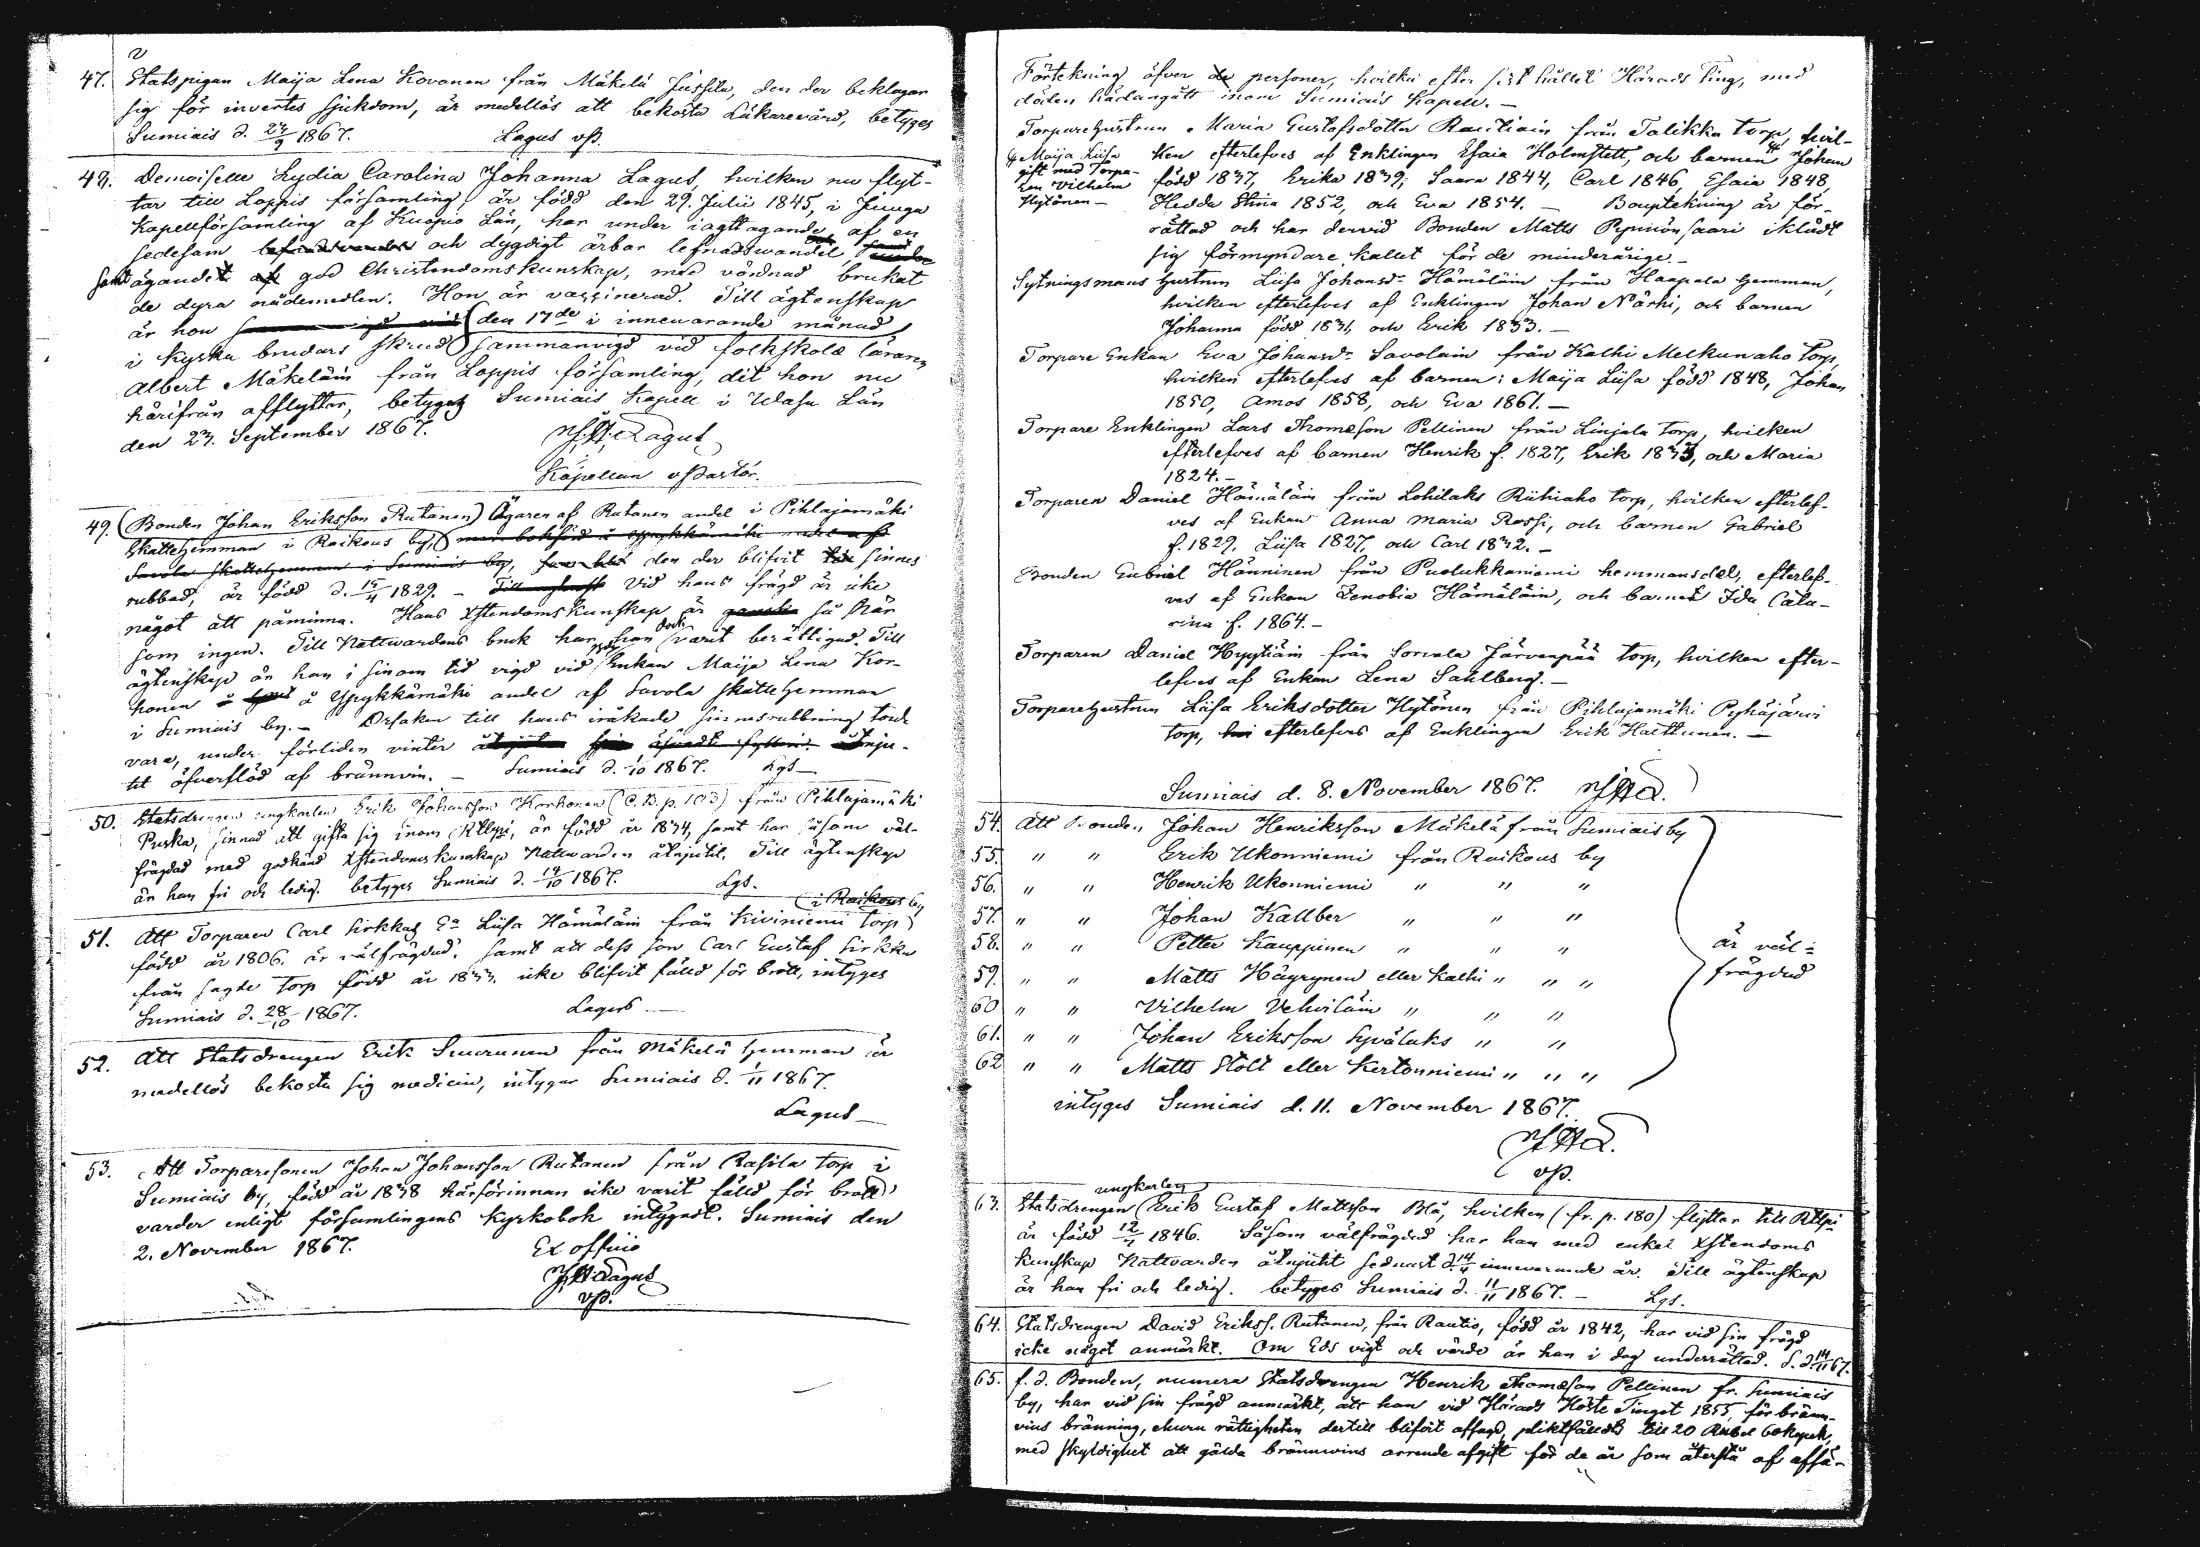 47. Statspigan Maija Lena Kovanen från Mäkelä Jussila, den der beklagar
sig för invertes sjukdom, är medellös att bekosta Läkarevård, betyges
Sumiais d. 27/9 1867. Lagus vp.
48. Demoiselle Lydia Carolina Johanna Lagus, hvilken nu flyt-
tar till Loppis församling, är född den 29. Julii 1845, i Junga
Kapellförsamling af Kuopio Län, har under iagttagande af en
sedesam och dygdigt ärbar lefnadswandel,
samt ägande af god Christendomskunskap, med vördnad brukat
de dyra nådemedlen. Hon är vaxsinerad. Till ägtenskap
är hon den 17de i innevarande månad
i kyska brudars skrud sammanvigd vid folkskolæ läraren
Albert Mäkeläin från Loppis församling, dit hon nu
härifrån afflyttar, betygar Sumiais Kapell i Wasa Län
den 27. September 1867. Lagus
Kapellan v Pastor.
49. (Bonden Johan Eriksson Rutanen) Ägaren af Rutanen andel i Pihlajamäki
Skattehemman i Raikous by,
Savola skattehemman i Sumiais by, den der blifvit sinnes
rubbad, är född d. 15/4 1829. - Vid hans frägd är icke
något att påminna. Hans Xstendomskunskap är så när
som ingen. Till Nattwardens bruk har han dock varit berättigad. Till
ägtenskap är han i sinom tid vigd vid Enkan Maija Lena Kor-
honen å Ypykkämäki andel af Savola skattehemman
i Sumiais by. - Orsaken till hans iråkade sinnesrubbning torde
vara, under förliden vinter åtnju-
tit öfverflöd af brännvin. - Sumiais d. 1/10 1867. Lgs -
50. Statsdrengen ungkarlen Erik Johansson Korhonen (C.B. p. 103) från Pihlajamäki
Puska, sinnad att gifta sig inom Rtlpi, är född år 1834, samt har såsom väl-
frägdad med godkänd Xstendomskunskap Nattwarden åtnjutit. Till ägtenskap
är han fri och ledig. betyges Sumiais d. 19/10 1867. Lgs.
i Raikous by
51. Att Torparen Carl Sirkkas Ea Liisa Hämäläin från Kiviniemi torp
född år 1806. är välfrägdad. samt att dess son Carl Gustaf Sirkka
från sagde torp född år 1833. icke blifvit fälld för brott, intyges
Sumiais d. 28/10 1867. Lagus
52. Att Statsdrengen Erik Suurunen från Mäkelä hemman är
medellös bekosta sig medicin, intygar Sumiais d. 1/11 1867.
Lagus
53. Att Torparesonen Johan Johansson Rutanen från Rasila torp i
Sumiais by, född år 1838 härförinnan icke varit fälld för brott
varder enligt församlingens kyrkobok intygadt. Sumiais den
2. November 1867. Ex officio
Lagus
vp.
Förtekning öfver de personer, hvilka efter sist hållit Härads Ting, med
döden hädangått inom Sumiais Kapell. -
Torparehustrun Maria Gustafsdotter Rautiain från Talikka torp, hvil-
ken efterlefves af Enklingen Esaia Holmstett, och barnen Johan
& Maija Liisa
gift med Torpa-
ren Vilhelm
Hytönen -
född 1837, Erika 1839, Saara 1844, Carl 1846, Esaia 1848,
Hedda Stina 1852, och Eva 1854. - Bouptekning är för-
rättad och har dervid Bonden Matts Pynnönsaari iklädt
sig förmyndare kallet för de minderårige. -
Sytningsmans hustrun Liisa Johansdr Hämäläin från Haapala hemman,
hvilken efterlefves af Enklingen Johan Närhi, och barnen
Johanna född 1831, och Erik 1833. -
Torpare Enkan Eva Johansdr Savolain från Kalhi Melkunaho torp,
hvilken efterlefves af barnen: Maija Liisa född 1848, Johan
1850, Amos 1858, och Eva 1861. -
Torpare Enklingen Lars Thomasson Pellinen från Linjala torp, hvilken
efterlefves af barnen Henrik f. 1827, Erik 1833, och Maria
1824. -
Torparen Daniel Hämäläin från Lohilaks Riihiaho torp, hvilken efterlef-
ves af Enkan Anna Maria Rossi, och barnen Gabriel
f. 1829. Liisa 1827, och Carl 1832. -
Bonden Gabriel Hänninen från Puolukkaniemi hemmansdel, efterlef-
ves af Enkan Zenobia Hämäläin, och barnet Ida Cata-
rina f. 1864. -
Torparen Daniel Hyytiäin från Sorvala Järvenpää torp, hvilken efter-
lefves af Enkan Lena Sahlberg. -
Torparehustrun Liisa Eriksdotter Hytönen från Pihlajamäki Pyhäjärvi
torp, efterlefves af Enklingen Erik Harttunen. -
Sumiais d. 8. November 1867.
54. Att Bonden Johan Henriksson Mäkelä från Sumiais by
55. " " Erik Ukonniemi från Raikous by
56. " " Henrik Ukonniemi " " "
57. " " Johan Kallber " " "
58. " " Petter Kauppinen " " "
är väl-
frägdad
59. " " Matts Häyrynen eller Kalhi " " "
60 " " Vilhelm Vehviläin " " "
61. " " Johan Eriksson Syväluks " "
62 " " Matts Stolt eller Kertonniemi " " "
intyges Sumiais d. 11. November 1867.
vp.
63. Statsdrengen ungkarlen Erik Gustaf Mattsson Blå, hvilken (fr. p. 180) flyttar till Rtlpi
är född 12/7 1846. Såsom välfrägdad har han med enkel Xstendoms
kunskap Nattvarden åtnjutit sednast d. 14/4 innevarande år. Till ägtenskap
är han fri och ledig. betyges Sumiais d. 11/11 1867. - Lgs.
64. Statsdrengen David Erikss. Rutanen, från Rautio, född år 1842, har vid sin frägd
icke något anmärkt. Om Eds vigt och värde är han i dag underrättad. S. d. 14/11 67.
65. f. d. Bonden, numera Statsdrengen Henrik Thomasson Pellinen fr. Sumiais
by, har vid sin frägd anmärkt, att han vid Härads Höste Tinget 1855, för bränn-
vins bränning, ehuru rättigheten dertill blifvit affagd, pliktfälldes till 20 Rubel 60 kopek,
med skyldighet att gälda brännwins arrende afgift för de år som återstå af affä-